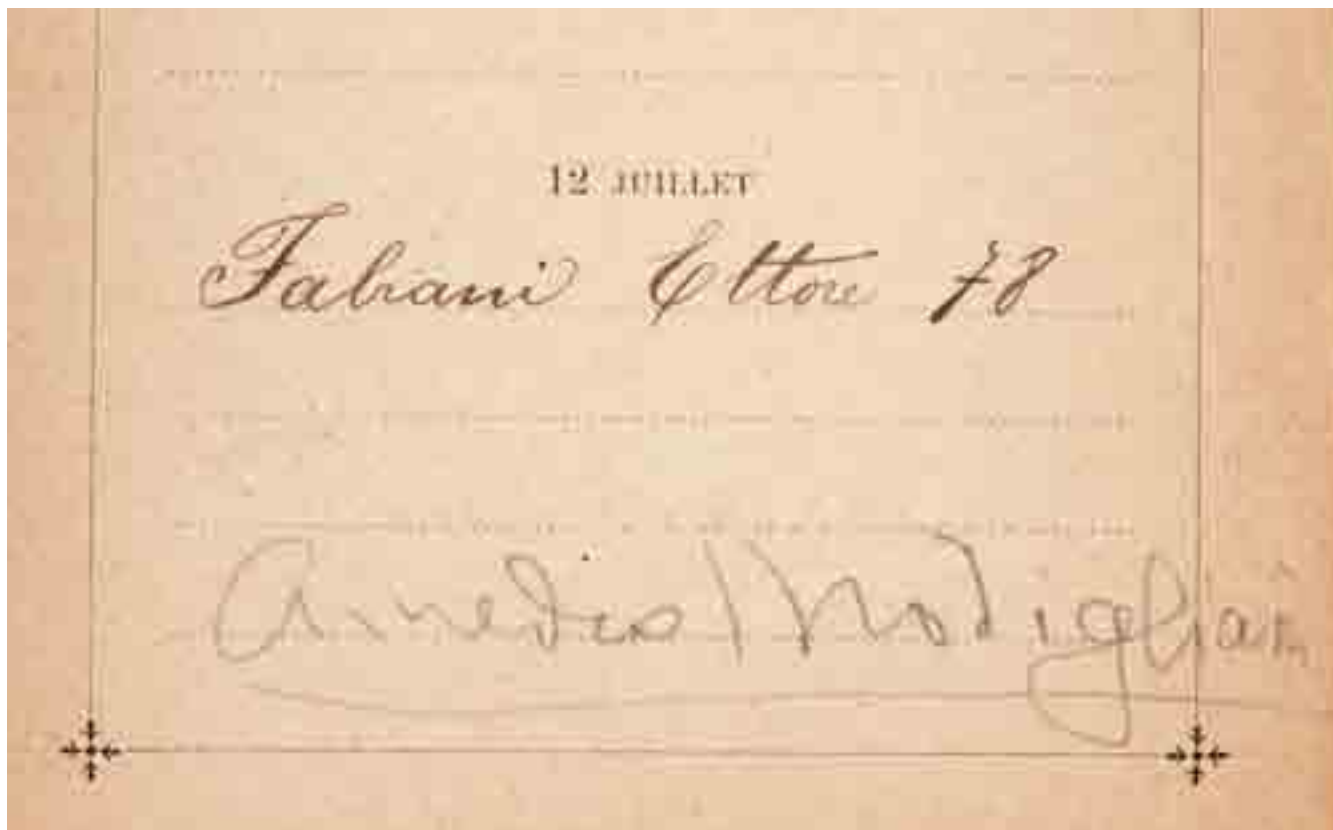 12 JUILLET
Fabiani Ettore 78
Amedeo Modigliani